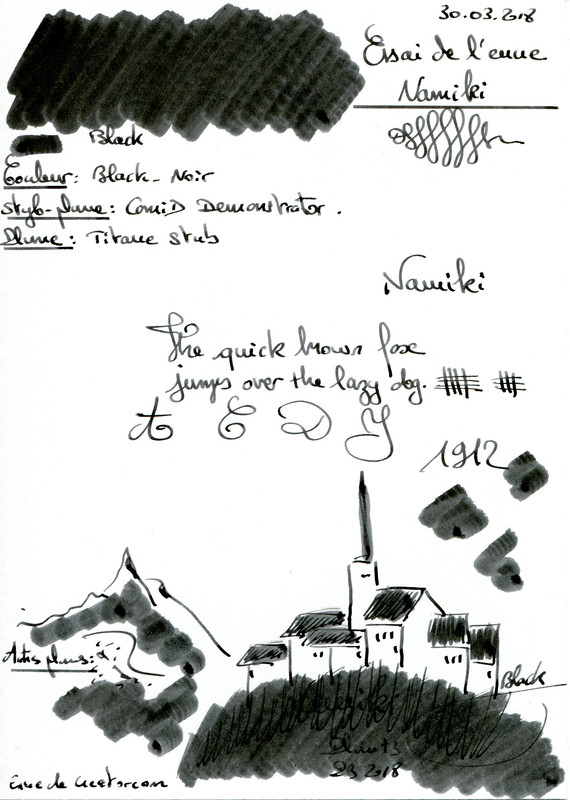 30.03.2018
Essai de l'encre
Namiki
Black
Couleur: Black - Noir
Stylo-plume: Conid Demonstrator.
Plume: Titane Stub
Namiki
The quick brown fox
jumps over the lazy dog.
A E D Y
1912
Autres plumes:
Black
23 2018
Encre de